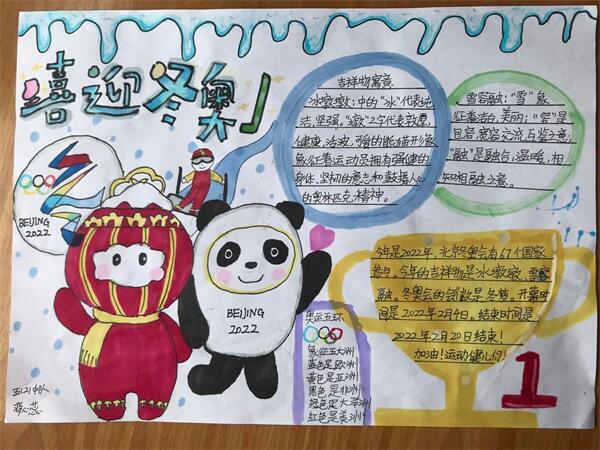 喜迎冬奥
BEIJING
2022
BEIJING
2022
吉祥物寓意
冰墩墩:中的“冰”代表纯
洁、坚强,“墩”2字代表敦厚、
健康、活泼、可爱的熊猫形象
象征着运动员拥有强健的
身体、坚韧的意志和鼓舞人心
的奥林匹克精神。
雪容融:“雪”象
征着洁白、美丽;“容”是
包容、宽容、交流互鉴之意;
“融”是融合、温暖,相
知相融之意。
今年是2022年,北京冬奥会有67个国家
参与。今年的吉祥物是冰墩墩、雪容
融。冬奥会的
开幕时
间是2022年2月4日。结束时间是
2022年2月20日结束!
加油!运动健儿们!
1
奥运五环
象征五大洲
蓝色是欧洲
黄色是亚洲
黑色是非洲
绿色是大洋洲
红色是美洲
五(2)中队